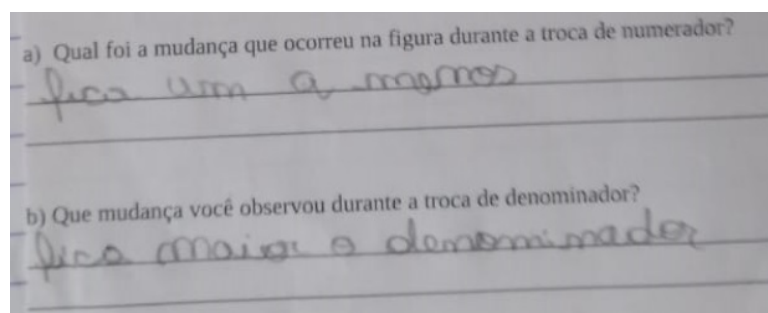 a) Qual foi a mudança que ocorreu na figura durante a troca de numerador?
fica um a menos
b) Que mudança você observou durante a troca de denominador?
fica maior o denominador